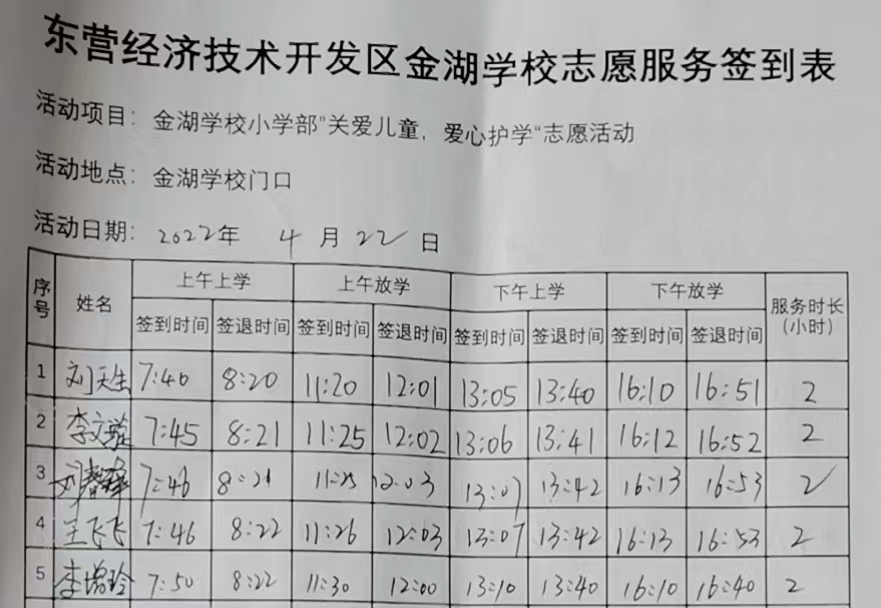 东营经济技术开发区金湖学校志愿服务签到表
活动项目：金湖学校小学部"关爱儿童，爱心护学"志愿活动
活动地点：金湖学校门口
活动日期：2022年 4 月 22 日
序号 姓名 上午上学 上午放学 下午上学 下午放学 服务时长（小时）
签到时间 签退时间 签到时间 签退时间 签到时间 签退时间 签到时间 签退时间
1 刘天生 7:40 8:20 11:20 12:01 13:05 13:40 16:10 16:51 2
2 李文璇 7:45 8:21 11:25 12:02 13:06 13:41 16:12 16:52 2
3 7:46 8:21 11:25 12:03 13:07 13:42 16:13 16:53 2
4 王飞飞 7:46 8:22 11:26 12:03 13:07 13:42 16:13 16:53 2
5 李增玲 7:50 8:22 11:30 12:00 13:10 13:40 16:10 16:40 2